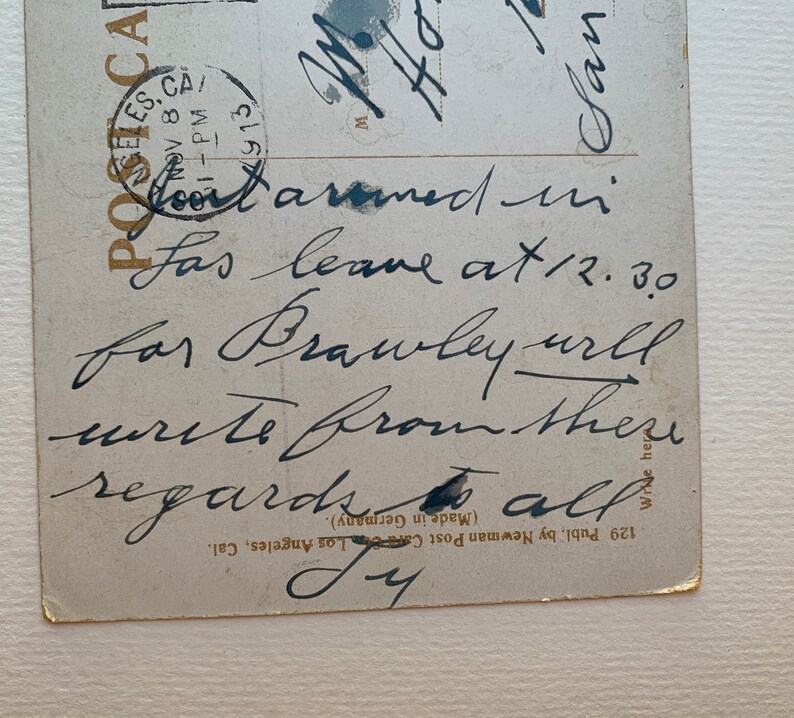 POST CA
GELES, CA
NOV 8
11-PM
1913
M
W.
Ho
San
Just arrived in
Los leave at 12.30
for Brawley will
write from there
regards to all
Ty
Write here
129 Publ. by Newman Post Card Co., Los Angeles, Cal.
(Made in Germany).